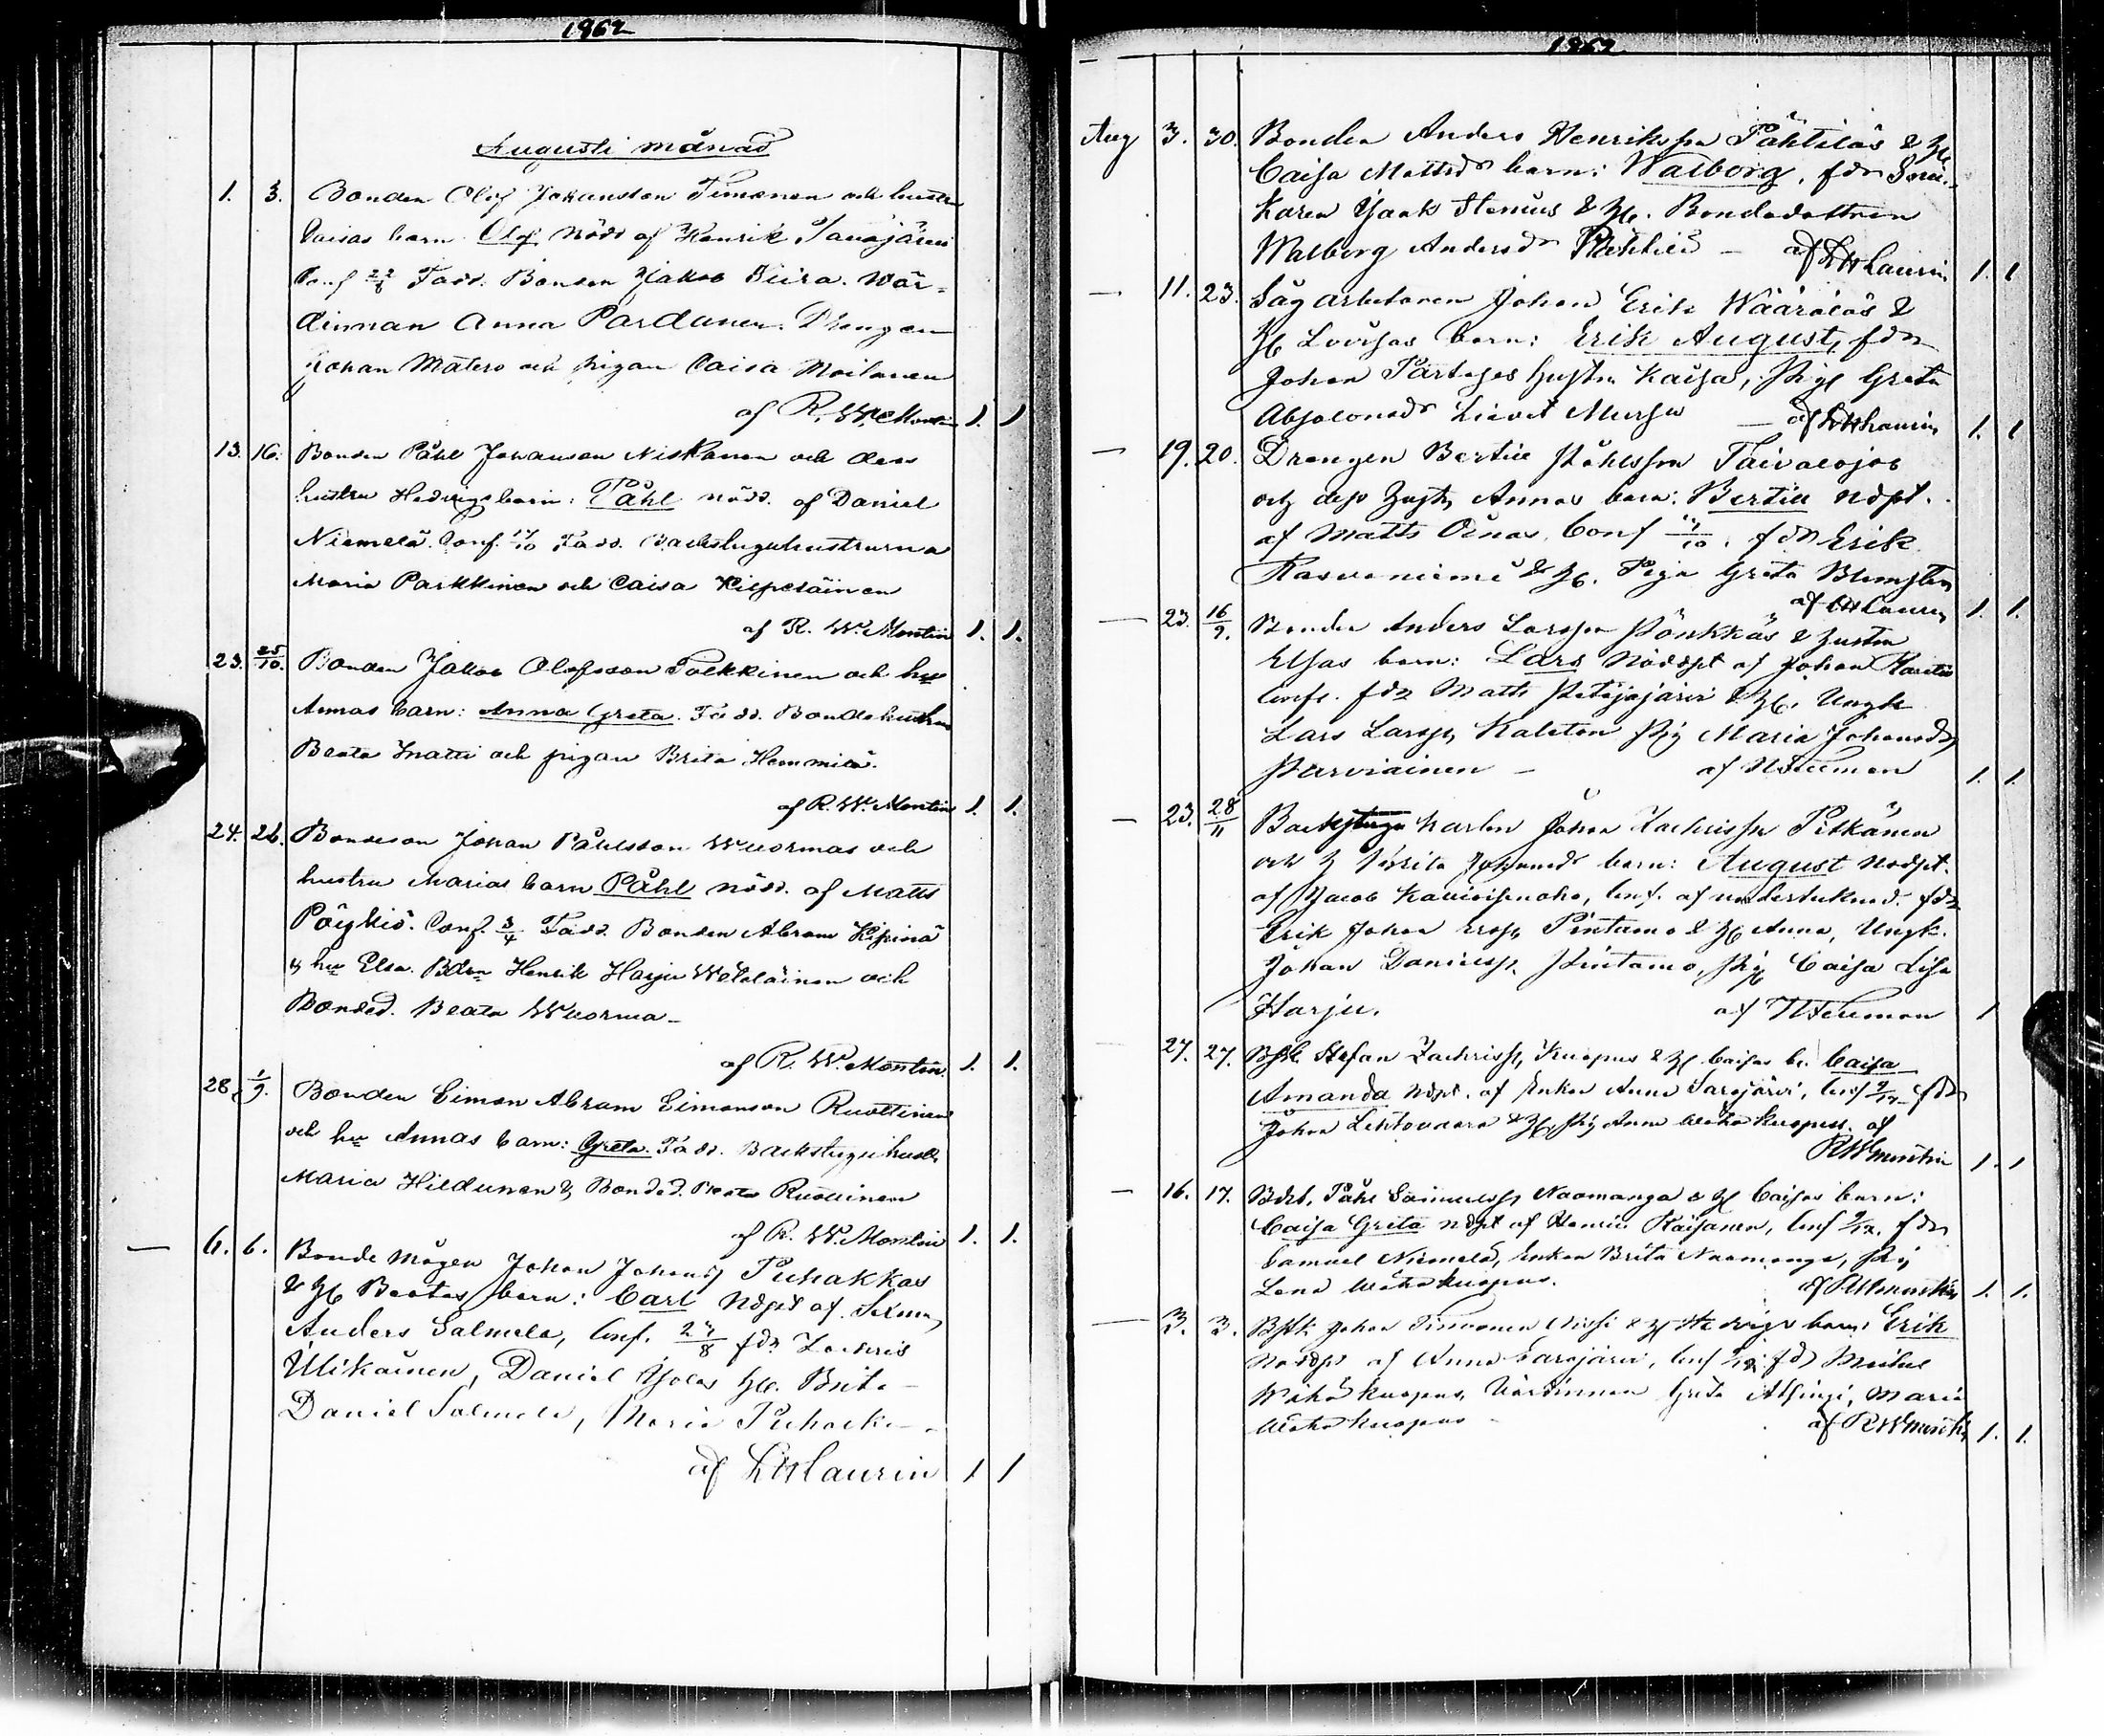 1862
Augusti månad
1. 3. Bonden Olof Johansson Timonen och hustru
Caisas barn Olof nödd. af Henrik
Conf 22/8 Fadd. Bonden Jakob Piira. Wär-
dinnan Anna Pardanen. Drengen
Johan Matero och pigan Caisa Moilanen
af R. W. Montin 1. 1
13. 16. Bonden Påhl Johansson Niskanen och dess
hustru Hedvigs barn: Påhl nödd. af Daniel
Niemelä. Conf. 17/10 Fadd. Backstuguhustrurna
Maria Parkkinen och Caisa Kilpeläinen
af R. W. Montin 1. 1.
23. 25/10. Bonden Jakob Olofsson Polkkinen och hu
Annas barn: Anna Greta. Fadd. Bondehustrun
Beata Inatti och pigan Brita Hemmilä.
af R. W. Montin 1. 1.
24. 26. Bondeson Johan Påhlsson Wuormas och
hustru Marias barn Påhl nödd. af Matts
Pöykiö. Conf. 3/4 Fadd. Bonden Abram Kipinä
& hu Elsa. Bden Henrik Harju Wätäläinen och
Bonded. Beata Wuorma
af R. W. Montin. 1. 1.
28. 1/9. Bonden Simon Abram Simonson Ruottinen
och hu Annas barn: Greta. Fadd. Backstuguhustr.
Maria Hildunen & Bonded. Beata Ruottinen
af R. W. Montin 1. 1.
— 6. 6. Bonde mågen Johan Johans Puhakkas
& H Beatas barn: Carl Ndpt af
Anders Salmela, Conf. 24/8 fdr Zachris
Ulikainen, Daniel Yolas H. Brita
Daniel Salmela, Maria Puhakka
af L H Laurin 1 1
1862
Aug 3. 30. Bonden Anders Henriksson Pähtiläs & H
Caisa Mattsdr barn: Walborg, fdr Snic-
karen Isak Stenius & H. Bondedottren
Walborg Andersdr Pähtilä – af L H Laurin 1. 1
— 11. 23. Sågarbetaren Johan Erik Wääräläs &
H Lovisas barn: Erik August, fdr
Johan Partases hustru Kaisa, Pig Greta
Absalonsdr — af L H Laurin 1. 1
— 19. 20. Drengen Bertil Påhlsson Taivalojas
och dess hust. Annas barn: Bertil Ndpt.
af Matts Oinas, Conf 17/10. fdr Erik
Rasvaniemi & H. Piga Greta
af L H Laurin 1. 1.
— 23. 16/9. Bonden Anders Larsson Pönkkäs & hustru
Elsas barn: Lars Nöddpt af Johan
Conf. fdr Matts Petäjäjärvi & H. Ungk.
Lars Larss. Kaleton Pig Maria Johansdr
Parviainen – af Neuman 1. 1.
— 23. 28/11 Backstugu karlen Johan Zachrisson Pitkänen
och H Brita Johansdr barn: August Nödpt.
af Jacob Kauvosenaho, Conf. af undertecknad. fdr
Erik Johan Erss. Pintamo & H Anna, Ungk.
Johan Danielss. Pintamo, Pig Caisa Lisa
Harju. af Neuman 1
27. 27. Bstk. Stefan Zachriss. Kuopus & H Caisas b. Caisa
Amanda Ndpt. af Enkan Anna Sarajärvi, Conf 9/12 fdr
Johan Lehtovaara & H, Pig Anna Kuopus. af
R W Montin 1. 1
— 16. 17. Bdn. Påhl Samuelss. Naamanga & H Caisas barn:
Caisa Greta Ndpt af Henric Kaisanen, Conf 9/12. fdr
Samuel Niemelä, Enkan Brita Naamanga, Pig
Lena Kuopus. af R W Montin 1. 1.
— 3. 3. Bstk Johan & H Hedvigs barn: Erik
Nöddpt af Anna Sarajärvi, Conf fdr Michel
Kuopus, Värdinnan Greta Maria
Kuopus af R W Montin 1. 1.